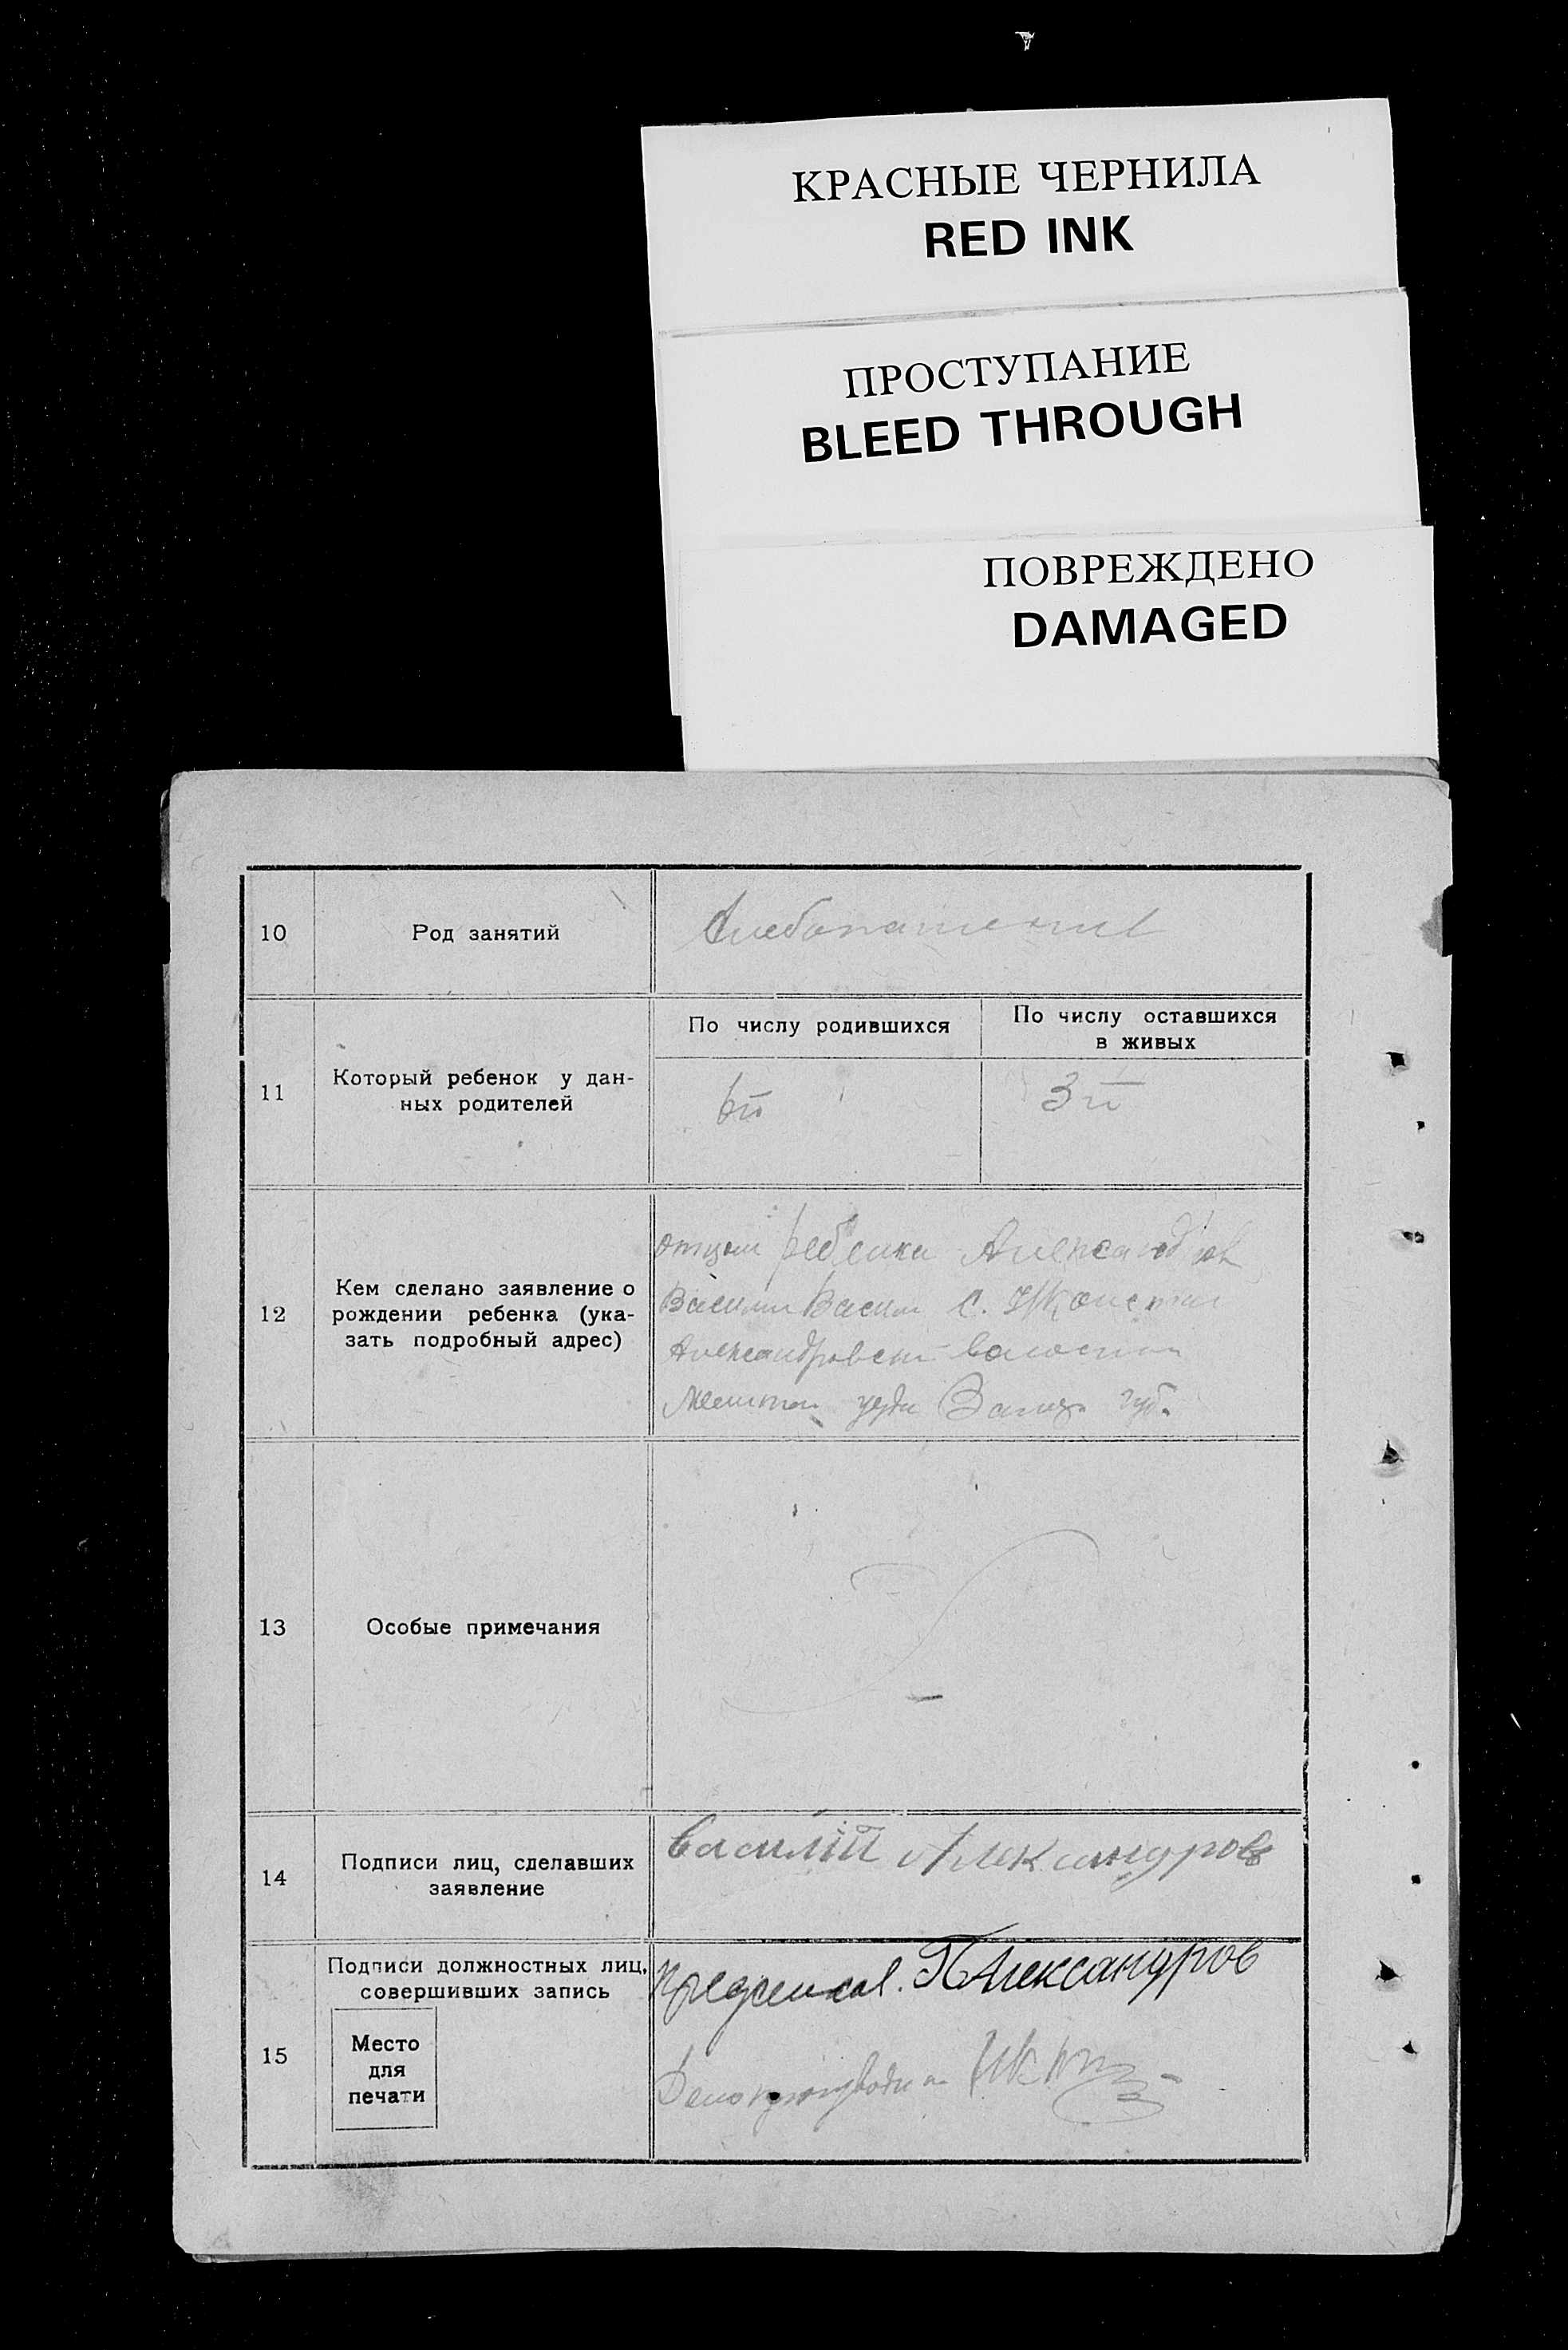 КРАСНЫЕ ЧЕРНИЛА
RED INK
ПРОСТУПАНИЕ
BLEED THROUGH
ПОВРЕЖДЕНО
DAMAGED
10
Род занятий
11
Который ребенок у дан-
ных родителей
По числу родившихся
По числу оставшихся
в живых
6й
3й
12
Кем сделано заявление о
рождении ребенка (ука-
зать подробный адрес)
отцом ребенка Александров
Васили Васил с.
Александровск волости
уезда губ.
13
Особые примечания
14
Подписи лиц, сделавших
заявление
Василий Александров
15
Подписи должностных лиц,
совершивших запись
Место
для
печати
Председ. П Александров
Делопроизводи